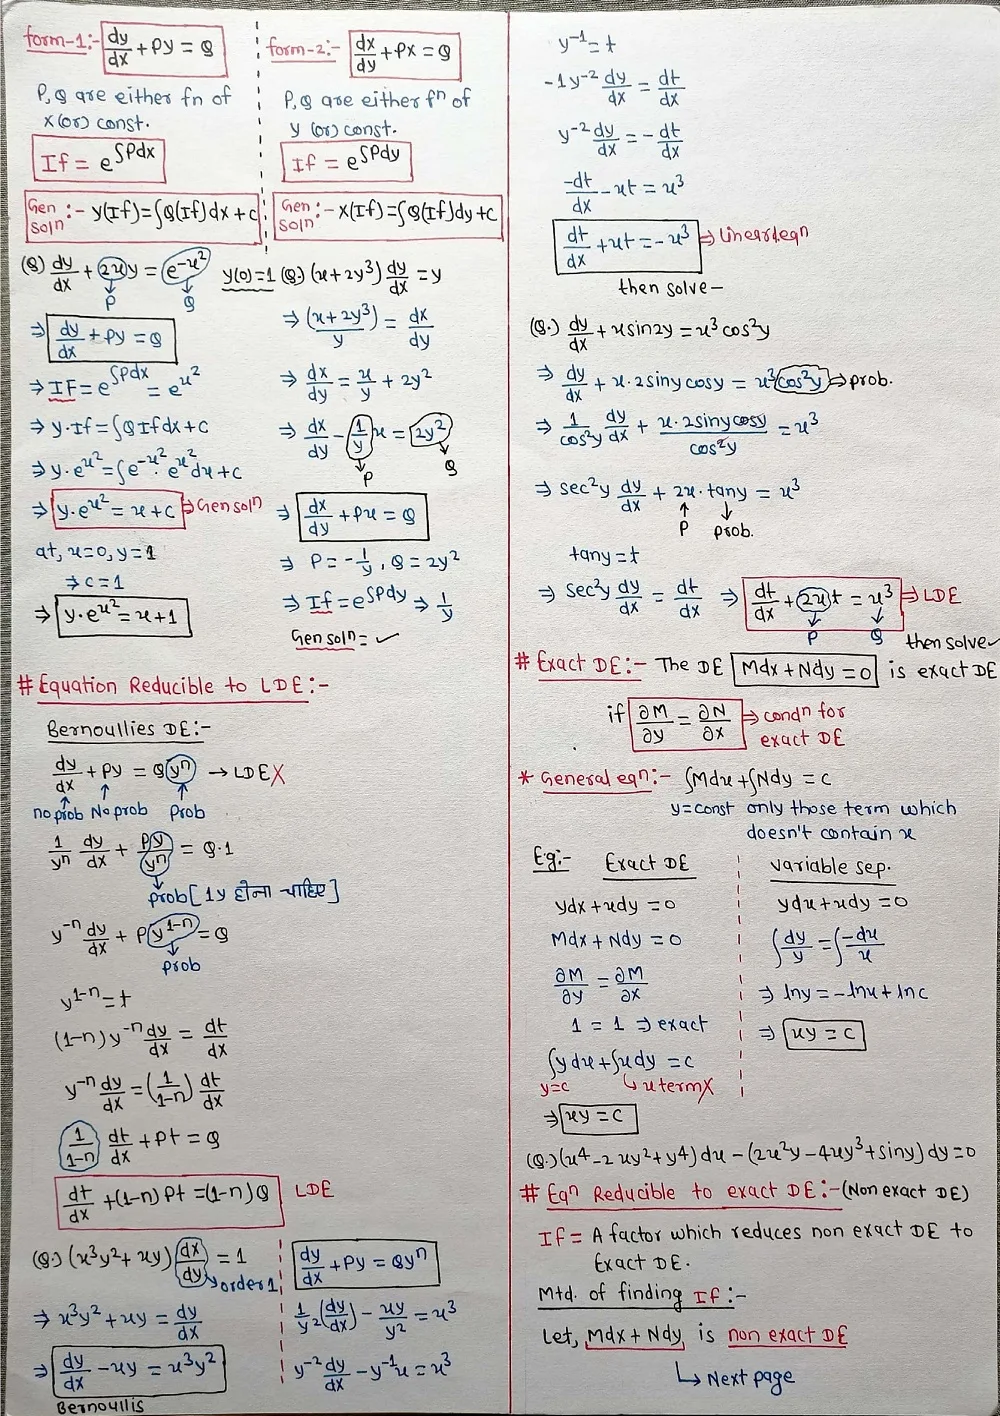 form-1:- dy/dx + Py = Q
P,Q are either fn of
x (or) const.
If = e^∫Pdx
Gen soln :- y(If) = ∫Q(If)dx + c
form-2:- dx/dy + Px = Q
P,Q are either fn of
y (or) const.
If = e^∫Pdy
Gen soln :- x(If) = ∫Q(If)dy + c
(Q) dy/dx + 2xy = e^-x² y(0)=1
P Q
⇒ dy/dx + Py = Q
⇒ IF = e^∫Pdx = e^x²
⇒ y·If = ∫Q If dx + c
⇒ y·e^x² = ∫e^-x²·e^x² dx + c
⇒ y·e^x² = x + c ⇒ Gen soln
at, x=0, y=1
⇒ c = 1
⇒ y·e^x² = x + 1
(Q.) (x + 2y³) dy/dx = y
⇒ (x + 2y³)/y = dx/dy
⇒ dx/dy = x/y + 2y²
⇒ dx/dy - (1/y)x = 2y²
P Q
⇒ dx/dy + Px = Q
⇒ P = -1/y, Q = 2y²
⇒ If = e^∫Pdy ⇒ 1/y
Gen soln = ✓
# Equation Reducible to LDE:-
Bernoullies DE:-
dy/dx + Py = Q y^n → LDE X
no prob No prob Prob
1/y^n dy/dx + Py/y^n = Q·1
prob [1y होना चाहिए]
y^-n dy/dx + P y^1-n = Q
prob
y^1-n = t
(1-n) y^-n dy/dx = dt/dx
y^-n dy/dx = (1/1-n) dt/dx
1/1-n dt/dx + Pt = Q
dt/dx + (1-n) Pt = (1-n) Q LDE
(Q.) (x³y² + xy) dx/dy = 1
order 1
⇒ x³y² + xy = dy/dx
⇒ dy/dx - xy = x³y²
Bernoullis
dy/dx + Py = Qy^n
1/y² (dy/dx) - xy/y² = x³
y^-2 dy/dx - y^-1 x = x³
y^-1 = t
-1y^-2 dy/dx = dt/dx
y^-2 dy/dx = -dt/dx
-dt/dx - xt = x³
dt/dx + xt = -x³ ⇒ linear eqn
then solve-
(Q.) dy/dx + x sin2y = x³ cos²y
⇒ dy/dx + x·2siny cosy = x³ cos²y ⇒ prob.
⇒ 1/cos²y dy/dx + x·2siny cosy/cos²y = x³
⇒ sec²y dy/dx + 2x·tany = x³
P prob.
tany = t
⇒ sec²y dy/dx = dt/dx ⇒ dt/dx + 2xt = x³ ⇒ LDE
P Q then solve✓
# Exact DE:- The DE Mdx + Ndy = 0 is exact DE
if ∂M/∂y = ∂N/∂x ⇒ condn for
exact DE
* General eqn:- ∫Mdx + ∫Ndy = c
y=const only those term which
doesn't contain x
Eg:- Exact DE
ydx + xdy = 0
Mdx + Ndy = 0
∂M/∂y = ∂M/∂x
1 = 1 ⇒ exact
∫ydx + ∫xdy = c
y=c x term X
⇒ xy = c
variable sep.
ydx + xdy = 0
∫dy/y = ∫-dx/x
⇒ lny = -lnx + lnc
⇒ xy = c
(Q.) (x⁴ - 2xy² + y⁴) dx - (2x²y - 4xy³ + siny) dy = 0
# Eqn Reducible to exact DE:- (Non exact DE)
If = A factor which reduces non exact DE to
Exact DE.
Mtd. of finding If:-
Let, Mdx + Ndy is non exact DE
Next page